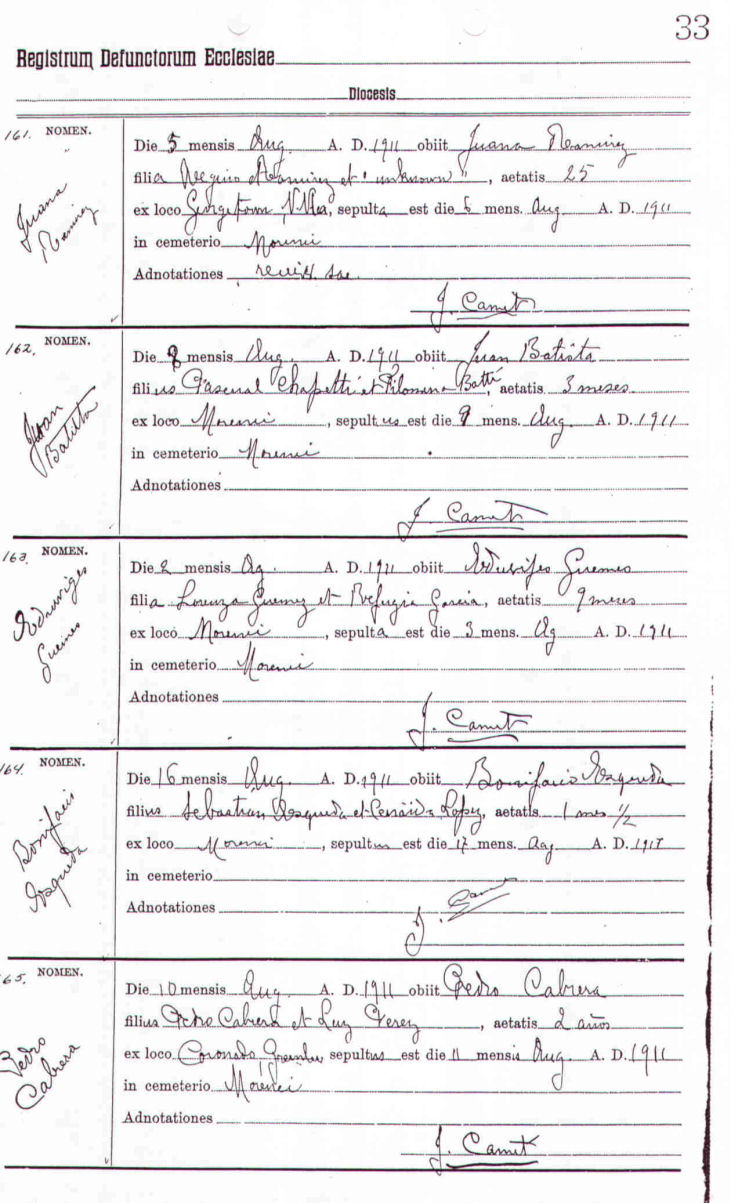 33
Registrum Defunctorum Ecclesiae
Diocesis
161. NOMEN.
Juana Ramirez
Die 5 mensis Aug. A. D. 1911 obiit Juana Ramirez
filia Ramirez et "unknown", aetatis 25
ex loco, sepulta est die 6 mens. Aug A. D. 1911
in cemeterio Morenci
Adnotationes
J. Camet
162. NOMEN.
Juan Batista
Die 8 mensis Aug. A. D. 1911 obiit Juan Batista
filius et Filomena, aetatis 3 meses
ex loco Morenci, sepultus est die 9 mens. Aug. A. D. 1911
in cemeterio Morenci
Adnotationes
J Camet
163. NOMEN.
Die 2 mensis Ag. A. D. 1911 obiit
filia et Refugia Garcia, aetatis 9 meses
ex loco Morenci, sepulta est die 3 mens. Ag A. D. 1911
in cemeterio Morenci
Adnotationes
J. Camet
164. NOMEN.
Bonifacio Esqueda
Die 16 mensis Aug A. D. 1911 obiit Bonifacio Esqueda
filius Sebastian Esqueda et Lopez, aetatis 1 mes 1/2
ex loco Morenci, sepultus est die 17 mens. Aug. A. D.
in cemeterio
Adnotationes
J. Camet
165. NOMEN.
Pedro Cabrera
Die 10 mensis Aug A. D. 1911 obiit Pedro Cabrera
filius Pedro Cabrera et Luz Perez, aetatis 2 años
ex loco Coronado sepultus est die 11 mensis Aug. A. D. 1911
in cemeterio Morenci
Adnotationes
J. Camet